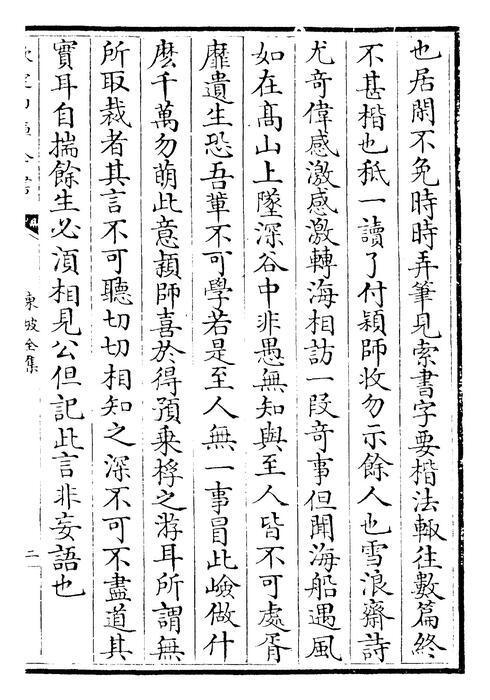 也居閑不免時時弄筆見索書字要楷法輙往數篇終
不甚楷也秪一讀了付穎師收勿示餘人也雪浪齋詩
尤奇偉感激感激轉海相訪一叚奇事但聞海船遇風
如在髙山上墜深谷中非愚無知與至人皆不可處胥
靡遺生恐吾軰不可學若是至人無一事冒此嶮做什
麽千萬勿萌此意穎師喜於得預乘桴之游耳所謂無
所取裁者其言不可聽切切相知之深不可不盡道其
實耳自揣餘生必湏相見公但記此言非妄語也
東坡全集
二